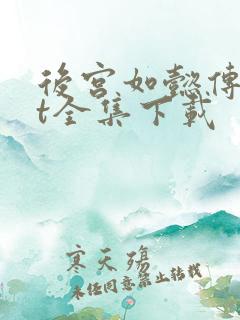 後宮如懿傳
t全集下載
寒天殤
未经同意禁止转载